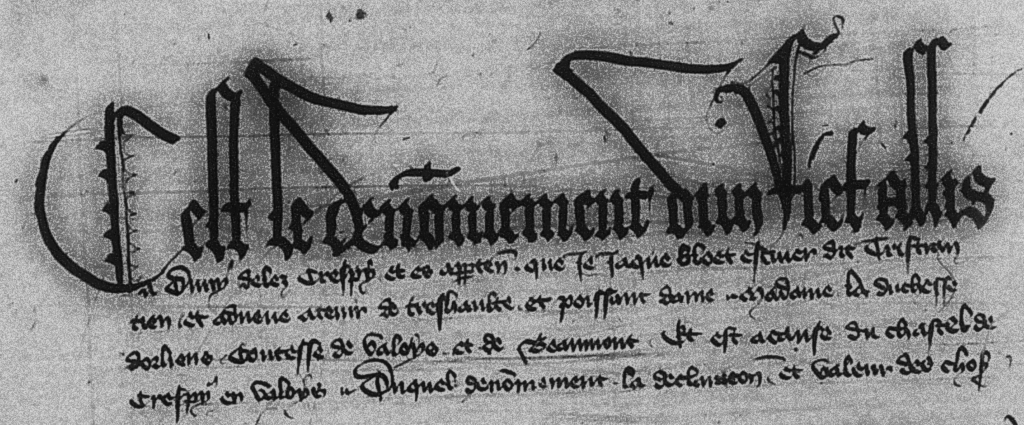 Cest le denōmement dun fief assis
a Duvy delez Crespy et es apparten̄ . que Je Jaque bloet escuier dit Tristran
tien et adveue a tenir de treshaulte et poissant dame madame la duchesse
dorliens Contesse de Valoys et de Beaumont . Et est a cause du chastel de
Crespy en Valoys Duquel denōmement la declaracion et valeur des chos